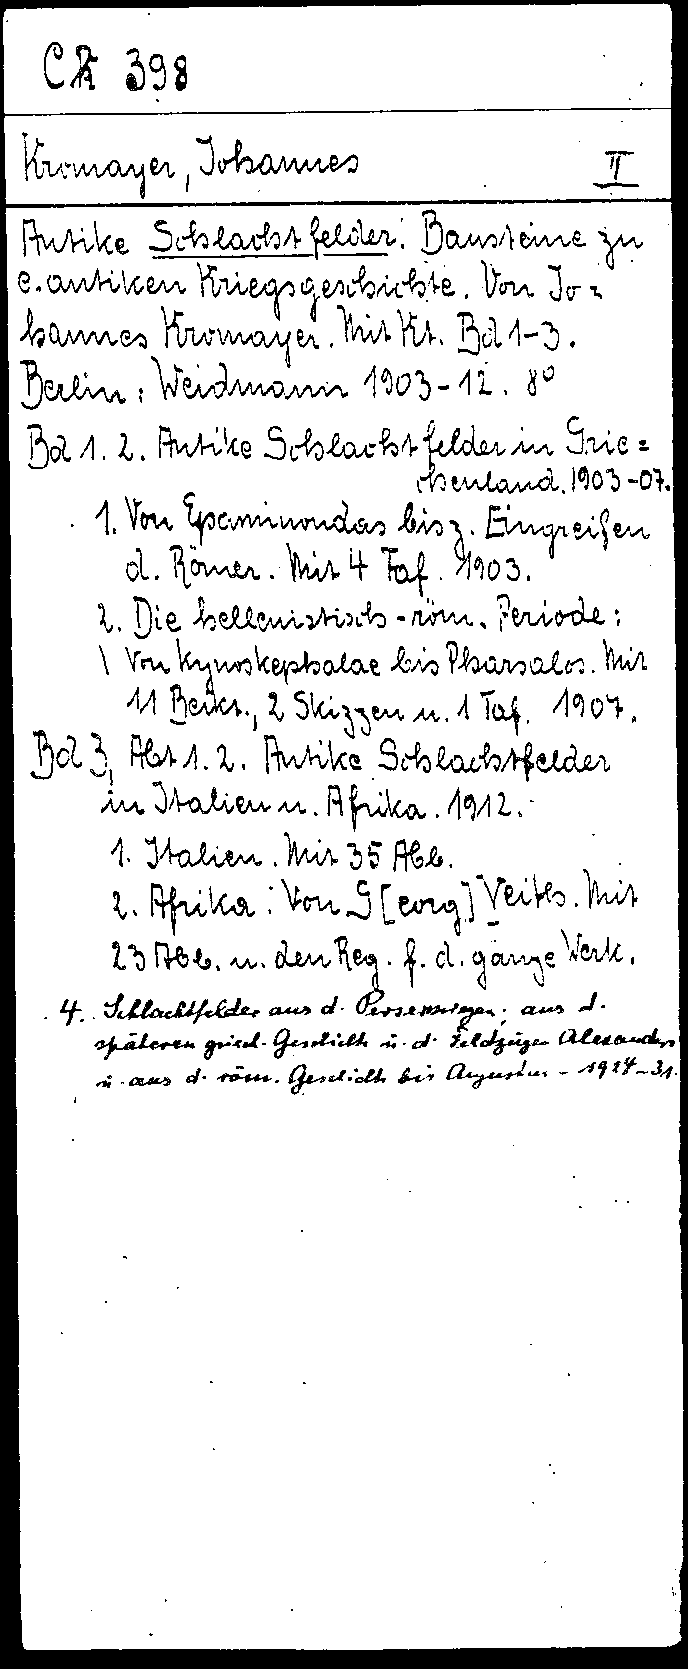 CR 398
Kromayer, Johannes II
Antike Schlachtfelder. Bausteine zu
e. antiken Kriegsgeschichte. Von Jo=
hannes Kromayer. Mit Kt. Bd 1-3.
Berlin: Weidmann 1903-12. 8°
Bd 1. 2. Antike Schlachtfelder in Grie=
chenland. 1903-07.
1. Von Epaminondas bis z. Eingreifen
d. Römer. Mit 4 Taf. 1903.
2. Die hellenistisch-röm. Periode:
Von Kynoskephalae bis Pharsalos. Mit
11 Beikt., 2 Skizzen u. 1 Taf. 1907.
Bd 3, Abt 1. 2. Antike Schlachtfelder
in Italien u. Afrika. 1912.
1. Italien. Mit 35 Abb.
2. Afrika: Von G[eorg] Veith. Mit
23 Abb. u. den Reg. f. d. ganze Werk.
4. Schlachtfelder aus d. Perserkriegen, aus d.
späteren griech. Geschicht u. d. Feldzügen Alexanders
u. aus d. röm. Geschicht bis Augustus - 1924-31.